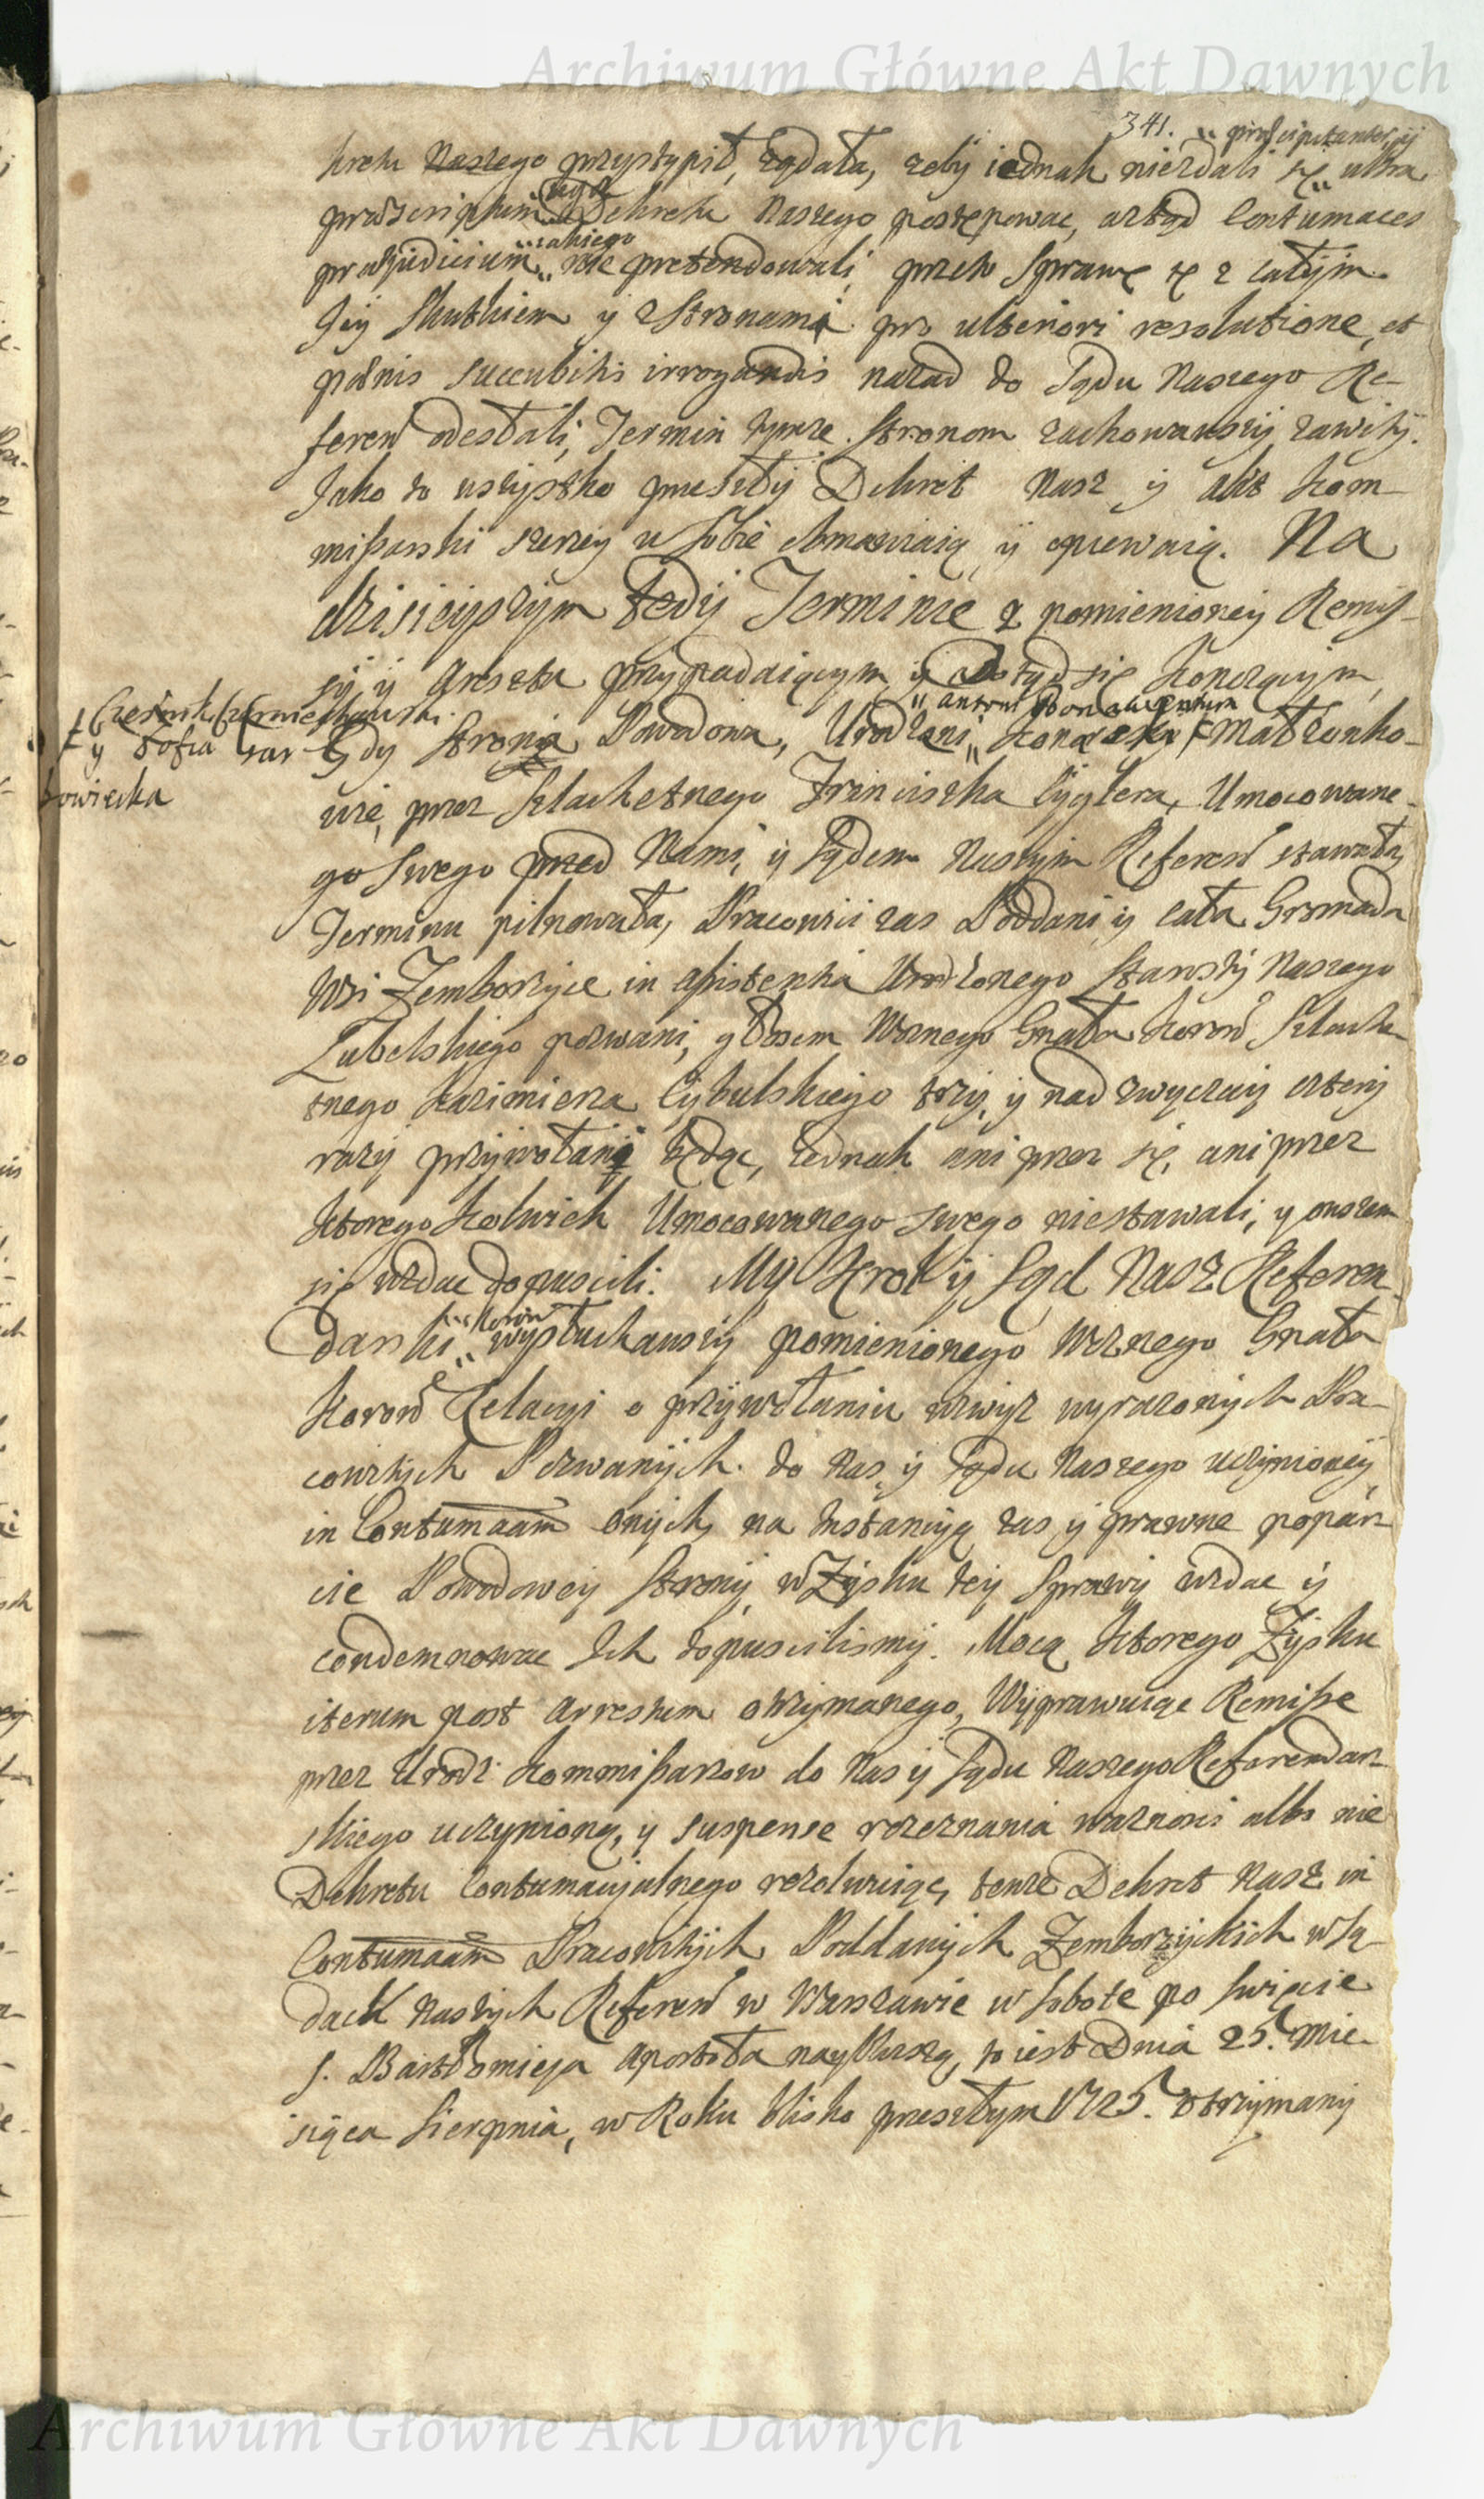 Archiwum Główne Akt Dawnych
341.
kretu Naszego przystąpił, żądała, zeby iednak niezdali się ultra
praescriptum Dekretu Naszego postępowac, ażtąd Contumaces
zakiego
praejudicium nie pretendowali, przeto Sprawę tę z całym
Jey Skutkiem y z Stronami pro ulteriori resolutione, et
paenis succubitis irrogandis nazad do Sądu Naszego Re-
feren odesłali, Termin tymze Stronom zachowawszy zawity.
Jako to wszystko przeszły Dekret Nasz y akt Kom-
missarski szerzey w Sobie obmawiaią y opiewaią. Na
dzisieyszym tedy Terminie z pomienioney Remis-
syi y Aresztu przypadaiącym y dotąd się konczącym,
Antoni Bonawentura
Gdy Strona Powodowa, Urodzeni Małzonko-
y Zofia
wie, przez Szlachetnego Franciszka Cyglera, Umocowane-
go Swego przed Nami, y Sądem Naszym Referen stawała,
Terminu pilnowała, Pracowici zas Poddani y cała Gromada
Wsi Zemborzyce in assistentia Urodzonego Starosty Naszego
Lubelskiego pozwani, głosem Woznego Gnała Koron Szlache-
tnego Kazimierza Cybulskiego trzy, y nad zwyczay cztery
razy przywołani będąc, Jednak ani przez się, ani przez
ktorego kolwiek Umocowanego Swego niestawali, y owszem
się wzdac dopuscili. My Krol y Sąd Nasz Referen-
Koron
darski wysłuchawszy pomienionego Woznego Gnała
Koron Relacyi o przywołaniu wzwyż wyrazonych Pra-
cowitych Pozwanych do Nas y Sądu Naszego uczynioney
in Contumaciam onych, na Instancyą zas y prawne popar-
cie Powodowey Strony, w Zysku tey Sprawy wzdac y
condemnowac Ich dopuscilismy. Mocą ktorego Zysku
iterum post Arrestum otrzymanego, Wyprawuiąc Remisse
przez Urodz: Kommissarzow do Nas y Sądu Naszego Referendar-
skiego uczynioną, y suspense rozeznania waznosci albo nie
Dekretu Contumacyalnego rezolwuiąc, tenze Dekret Nasz in
Contumaciam Pracowitych Poddanych Zemborzyckich w Są-
dach Naszych Referen w Warszawie w Sobotę po Swięcie
S. Bartłomieja Apostoła naybliszą, to iest Dnia 25. Mie-
siąca Sierpnia, w Roku blisko przeszłym 1725. otrzymany
Archiwum Główne Akt Dawnych